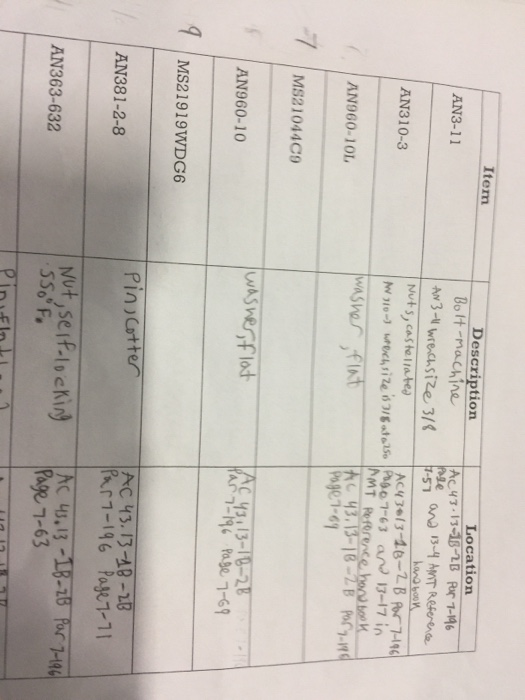 Item Description Location
AN3-11 Bolt-machine AC 43.13-1B-2B Par 7-196
AN3-11 wrench size 3/8 Page and 13-4 AMT Reference
7-57 handbook
AN310-3 Nuts, castellated AC43.13-1B-2B Par 7-196
Page 7-63 and 13-17 in
AMT Reference handbook
AN960-10L washer, flat AC 43.13-1B-2B Par 7-196
Page 7-69
7 MS21044C9
AN960-10 washer, flat AC 43.13-1B-2B
Par 7-196 Page 7-69
9 MS21919WDG6
AN381-2-8 Pin, cotter AC 43.13-1B-2B
Par 7-196 Page 7-71
AN363-632 Nut, self-locking AC 43.13-1B-2B Par 7-196
550°F. Page 7-63